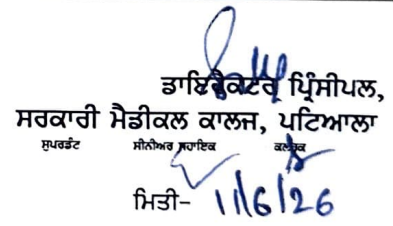 ਡਾਇਰੈਕਟਰ ਪ੍ਰਿੰਸੀਪਲ,
ਸਰਕਾਰੀ ਮੈਡੀਕਲ ਕਾਲਜ, ਪਟਿਆਲਾ
ਸੁਪਰਡੰਟ ਸੀਨੀਅਰ ਸਹਾਇਕ ਕਲਰਕ
ਮਿਤੀ- 11/6/26